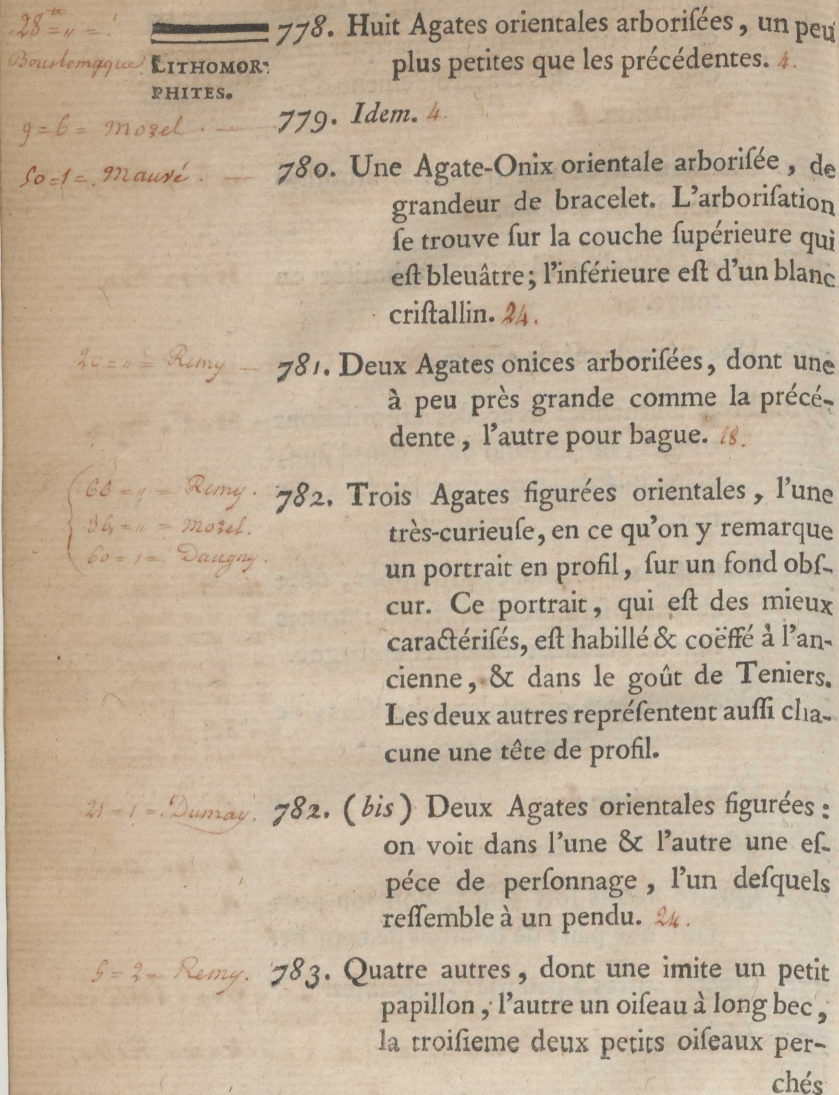 28 = " =
Boustemaque.
LITHOMOR-
PHITES.
778. Huit Agates orientales arboriſées, un peu
plus petites que les précédentes. 4.
9 = 6 = Morel. —
779. Idem. 4.
50 = 1 = Mauvé. —
780. Une Agate-Onix orientale arboriſée, de
grandeur de bracelet. L'arboriſation
ſe trouve ſur la couche ſupérieure qui
eſt bleuâtre; l'inférieure eſt d'un blanc
criſtallin. 24.
20 = " = Remy —
781. Deux Agates onices arboriſées, dont une
à peu près grande comme la précé-
dente, l'autre pour bague. 18.
= " = Remy.
36 = " = Morel.
60 = 1 = Daugny.
782. Trois Agates figurées orientales, l'une
très-curieuſe, en ce qu'on y remarque
un portrait en profil, ſur un fond obſ-
cur. Ce portrait, qui eſt des mieux
caractériſés, eſt habillé & coëffé à l'an-
cienne, & dans le goût de Teniers.
Les deux autres repréſentent auſſi cha-
cune une tête de profil.
21 = 1 = Dumay.
782. (bis) Deux Agates orientales figurées:
on voit dans l'une & l'autre une eſ-
péce de perſonnage, l'un deſquels
reſſemble à un pendu. 24.
5 = 2 = Remy.
783. Quatre autres, dont une imite un petit
papillon, l'autre un oiſeau à long bec,
la troiſieme deux petits oiſeaux per-
chés